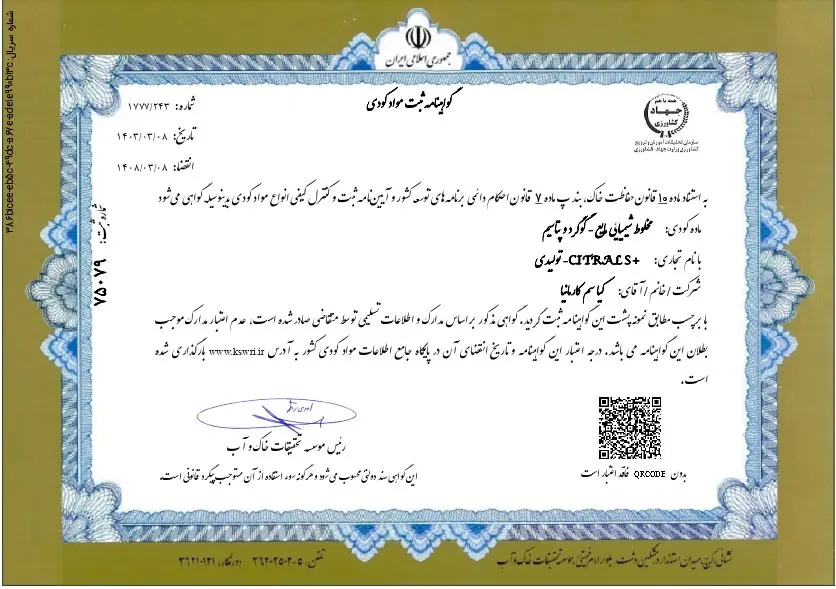 جمهوری اسلامی ایران
گواهینامه ثبت مواد کودی
شماره: ۱۷۷۷/۲۴۳
تاریخ: ۱۴۰۳/۰۳/۰۸
انقضا: ۱۴۰۸/۰۳/۰۸
همه با هم
جهاد
کشاورزی
سازمان تحقیقات، آموزش و ترویج
کشاورزی وزارت جهاد کشاورزی
شماره ثبت: ۷۵۰۷۹
به استناد ماده ۱۵ قانون حفاظت خاک، بند پ ماده ۷ قانون احکام دائمی برنامه های توسعه کشور و آیین‌نامه ثبت و کنترل کیفی انواع مواد کودی بدینوسیله گواهی می‌شود
ماده کودی: مخلوط شیمیایی مایع - گوگرد و پتاسیم
با نام تجاری: CITRAL S+ -تولیدی
شرکت / خانم / آقای: کیا سم کارمانیا
با برچسب مطابق نمونه پشت این گواهینامه ثبت گردید. گواهی مذکور بر اساس مدارک و اطلاعات تسلیمی توسط متقاضی صادر شده است، عدم اعتبار مدارک موجب
بطلان این گواهینامه می باشد. درجه اعتبار این گواهینامه و تاریخ انقضای آن در پایگاه جامع اطلاعات مواد کودی کشور به آدرس www.kswri.ir بارگذاری شده
است.
رئیس موسسه تحقیقات خاک و آب
این گواهی سند دولتی محسوب می‌شود و هرگونه سوء استفاده از آن مستوجب پیگرد قانونی است.
بدون QRCODE فاقد اعتبار است
نشانی: کرج، میدان استاندارد، مشکین دشت، بلوار امام خمینی، موسسه تحقیقات خاک و آب
تلفن: ۵-۳۶۲۰۲۵۰۲ دورنگار: ۳۶۲۱۰۱۲۱
شماره سریال: